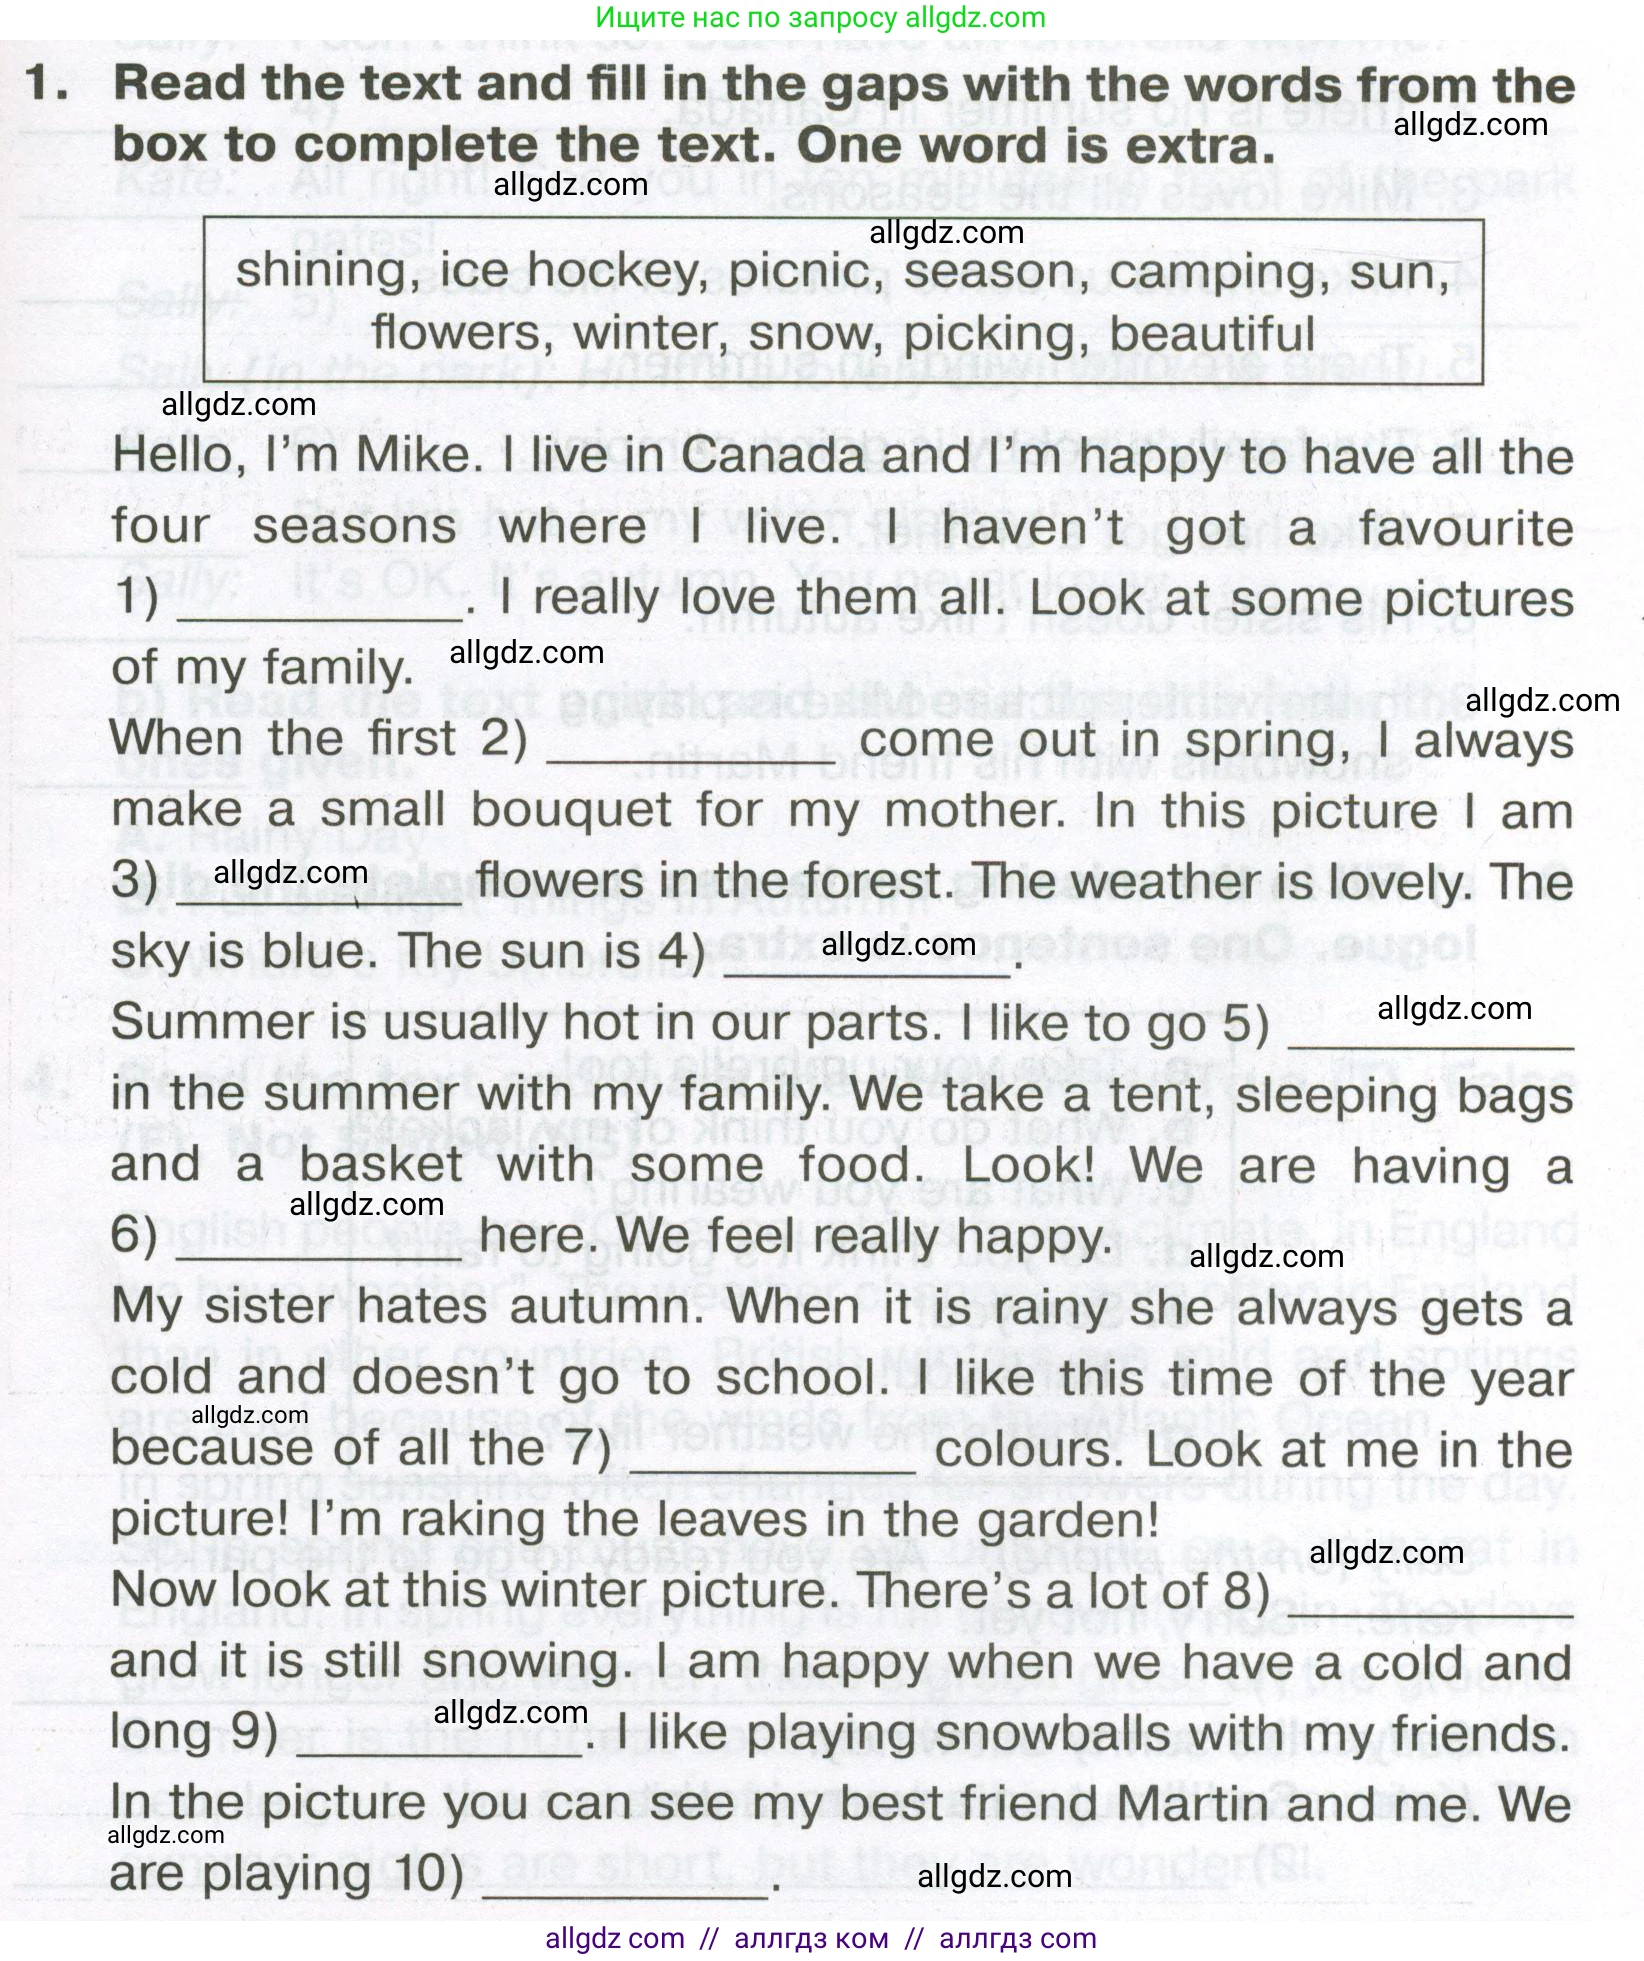 Ищите нас по запросу allgdz.com
1. Read the text and fill in the gaps with the words from the
allgdz.com
box to complete the text. One word is extra.
allgdz.com
allgdz.com
shining, ice hockey, picnic, season, camping, sun,
flowers, winter, snow, picking, beautiful
allgdz.com
Hello, I'm Mike. I live in Canada and I'm happy to have all the
four seasons where I live. I haven't got a favourite
1) ___________. I really love them all. Look at some pictures
of my family. allgdz.com
allgdz.com
When the first 2) ___________ come out in spring, I always
make a small bouquet for my mother. In this picture I am
3) allgdz.com ___________ flowers in the forest. The weather is lovely. The
sky is blue. The sun is 4) allgdz.com ___________.
Summer is usually hot in our parts. I like to go 5) allgdz.com ___________
in the summer with my family. We take a tent, sleeping bags
and a basket with some food. Look! We are having a
allgdz.com
6) ___________ here. We feel really happy. allgdz.com
My sister hates autumn. When it is rainy she always gets a
cold and doesn't go to school. I like this time of the year
allgdz.com
because of all the 7) ___________ colours. Look at me in the
picture! I'm raking the leaves in the garden!
allgdz.com
Now look at this winter picture. There's a lot of 8) ___________
and it is still snowing. I am happy when we have a cold and
long 9) allgdz.com ___________. I like playing snowballs with my friends.
In the picture you can see my best friend Martin and me. We
allgdz.com
are playing 10) ___________. allgdz.com
allgdz com // аллгдз ком // аллгдз com